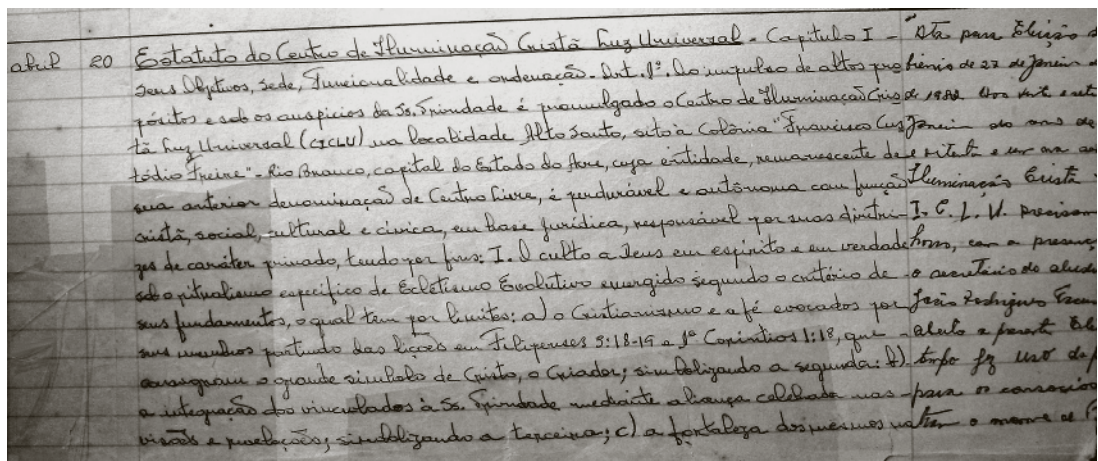 abril 20 Estatuto do Centro de Iluminação Cristã Luz Universal - Capitulo I - Ata para Eleição
seus Objetivos, sede, Funcionalidade e ordenação. Art. 1º. Do impulso de altos pro- biênio de 27 de Janeiro
pósitos e sob os auspicios da Ss. Trindade é promulgado o Centro de Iluminação Cris- de 1982 Aos vinte e sete
tã Luz Universal (CICLU) na localidade Alto Santo, sito à Colônia "Francisco Cus- Janeiro do ano de
tódio Freire" - Rio Branco, capital do Estado do Acre, cuja entidade, remanescente de e oitenta e um
sua anterior denominação de Centro Livre, é perdurável e autônoma com função Iluminação Cristã
cristã, social, cultural e cívica, em base jurídica, responsável por suas diretri- I. C. L. U. precisam
zes de caráter privado, tendo por fins: I. O culto a Deus em espírito e em verdade hora, com a presença
sob o ritualismo especifico de Ecletismo Evolutivo emergido segundo o critério de o secretário do
seus fundamentos, o qual tem por limites: a) o Cristianismo e a fé evocados por João Rodrigues
seus membros partindo das lições em Filipenses 3:18-19 e 1º Corintios 1:18, que aberto a
consignam o grande simbolo de Cristo, o Criador; simbolizando a segunda: b) tempo fez uso da
a integração dos vinculados à Ss. Trindade mediante aliança celebrada nas para
visões e revelações, simbolizando a terceira; c) a fortaleza dos mesmos na o nome de